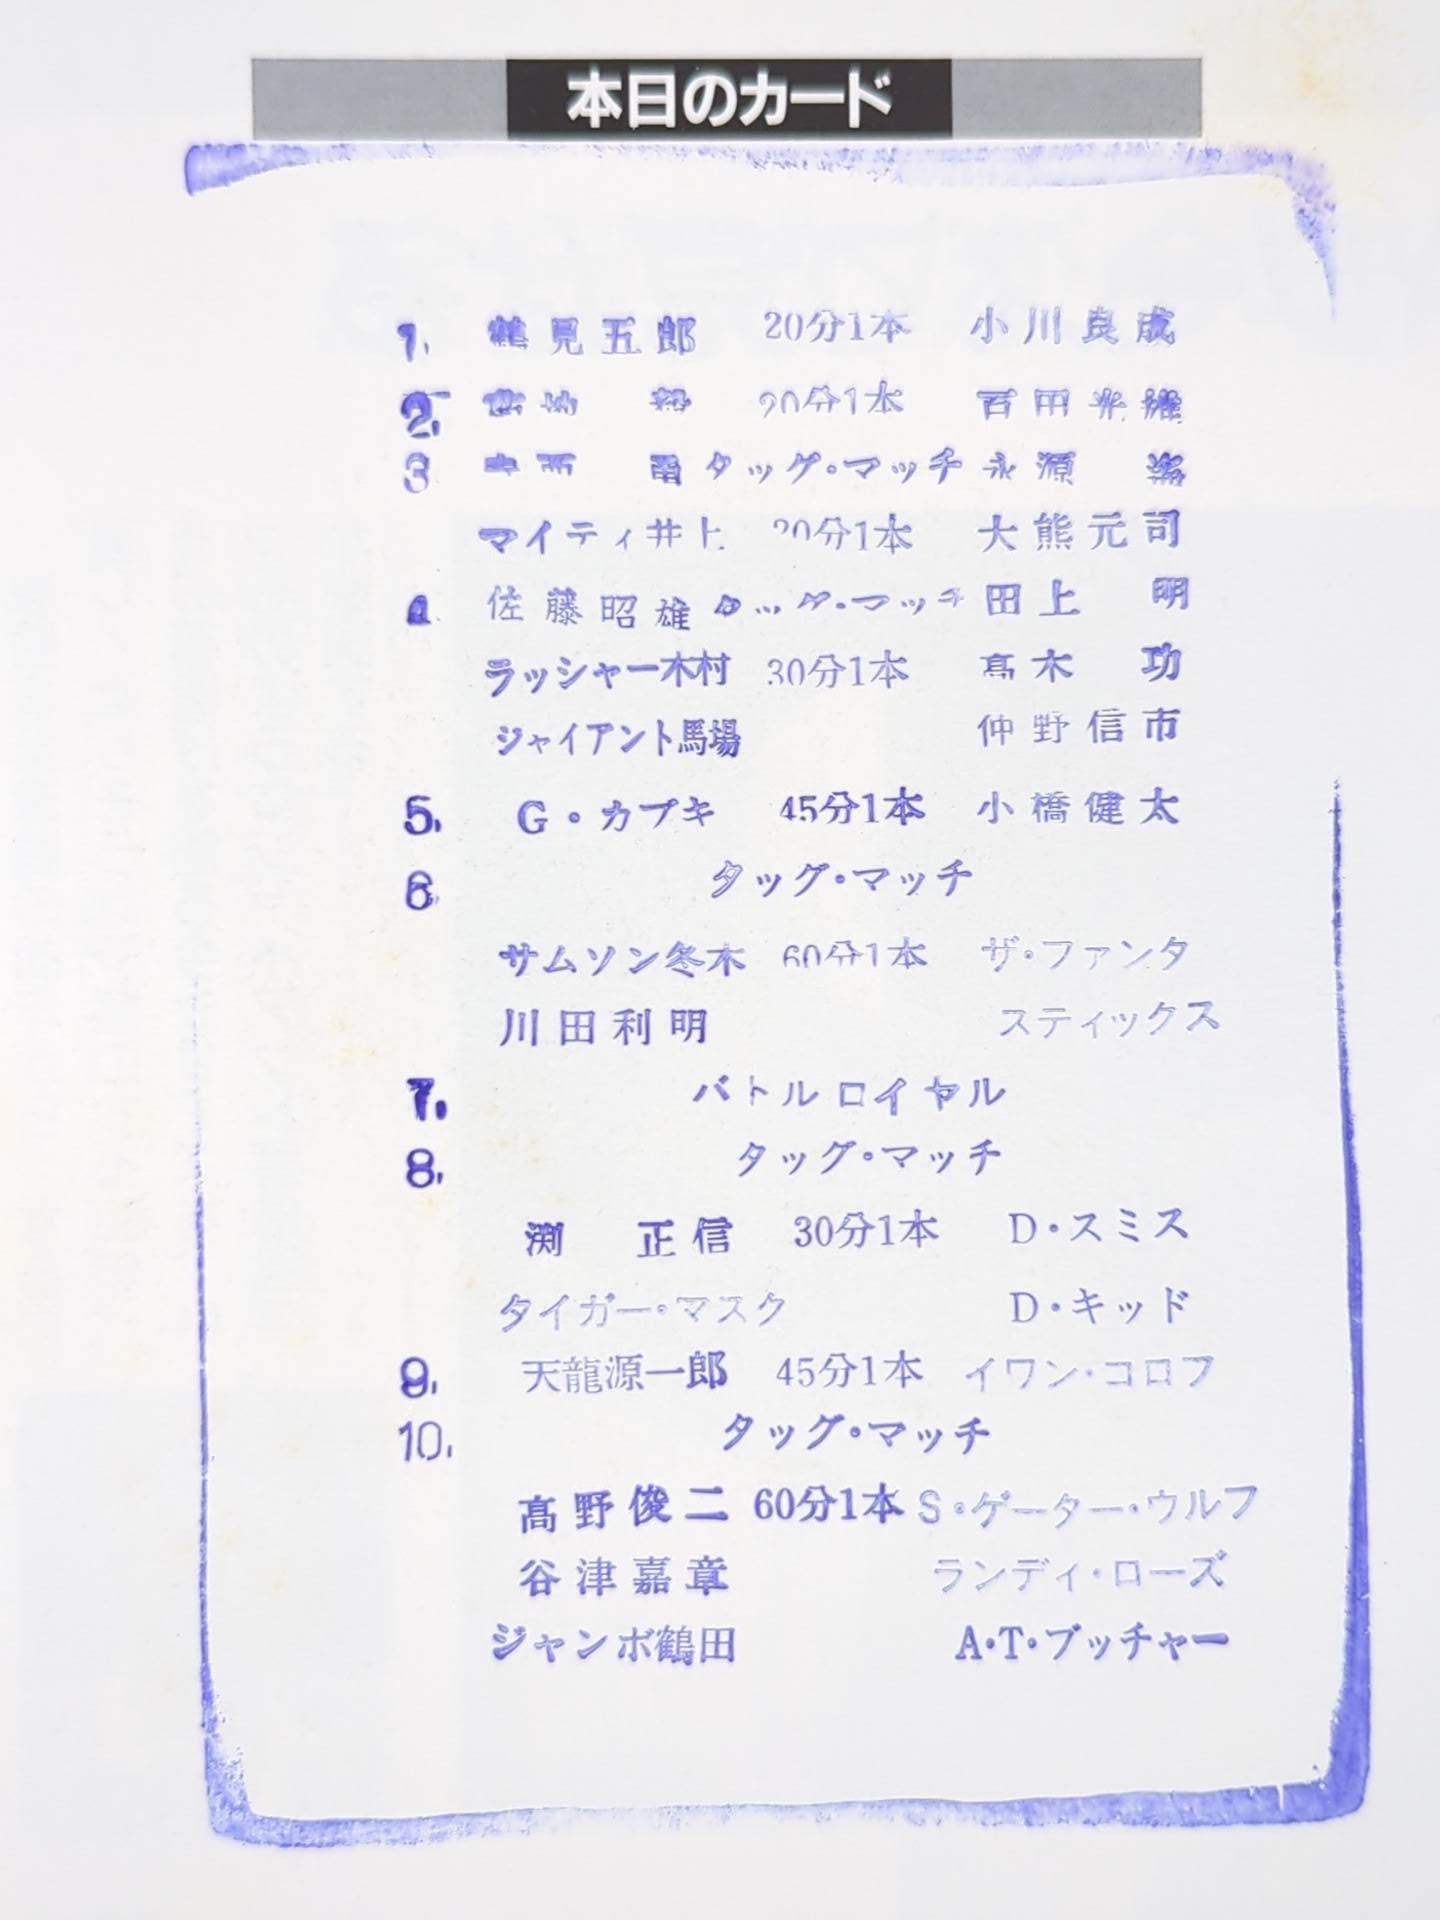 本日のカード
1. 鶴見五郎 20分1本 小川良成
2. 菊地 毅 20分1本 百田光雄
3 寺西 勇 タッグ・マッチ 永源 遙
マイティ井上 20分1本 大熊元司
4. 佐藤昭雄 タッグ・マッチ 田上 明
ラッシャー木村 30分1本 高木 功
ジャイアント馬場 仲野信市
5. G・カブキ 45分1本 小橋健太
6. タッグ・マッチ
サムソン冬木 60分1本 ザ・ファンタ
川田利明 スティックス
7. バトルロイヤル
8. タッグ・マッチ
渕 正信 30分1本 D・スミス
タイガー・マスク D・キッド
9. 天龍源一郎 45分1本 イワン・コロフ
10. タッグ・マッチ
高野俊二 60分1本 S・ゲーター・ウルフ
谷津嘉章 ランディ・ローズ
ジャンボ鶴田 A・T・ブッチャー